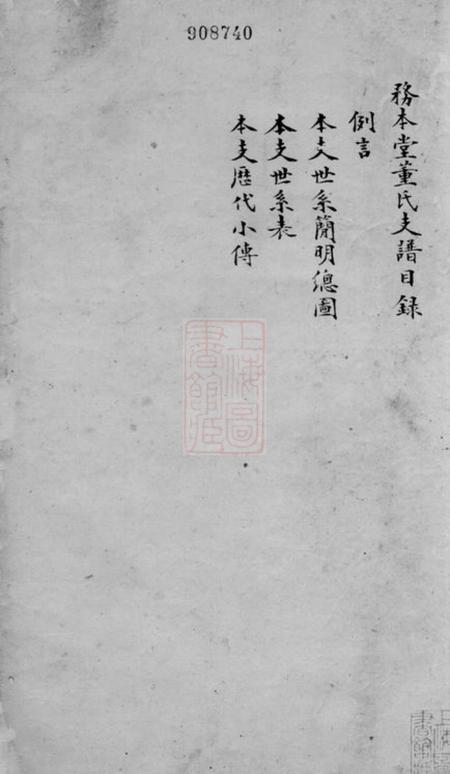 908740
務本堂董氏支譜目錄
例言
本支世系簡明總圖
本支世系表
本支歷代小傳
上海圖
書館藏
上海圖
書館藏